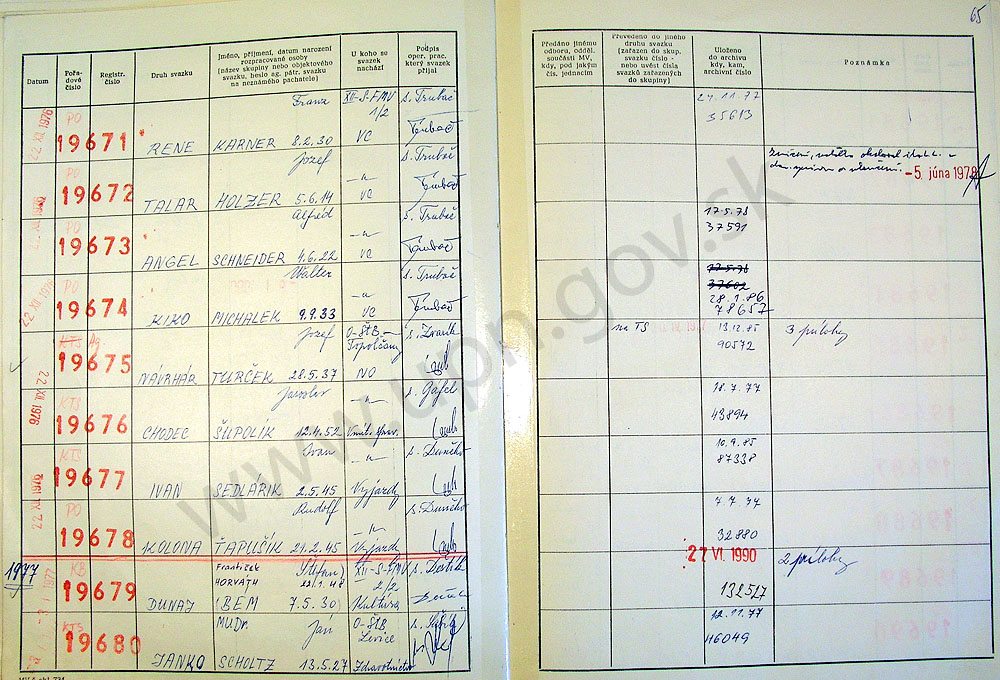 65
Datum
Pořa-
dové
číslo
Registr.
číslo
Druh svazku
Jméno, příjmení, datum narození
rozpracované osoby
(název skupiny nebo objektového
svazku, heslo ag. pátr. svazku
na neznámého pachatele)
U koho se
svazek
nachází
Podpis
oper. prac.
který svazek
přijal
Předáno jinému
odboru, odděl.
součásti MV,
kdy, pod jakým
čís. jednacím
Převedeno do jiného
druhu svazku
(zařazen do skup.
svazku číslo -
nebo uvést čísla
svazků zařazených
do skupiny)
Uloženo
do archivu
kdy, kam,
archivní číslo
Poznámka
22. XII. 1976
PO
19671
RENE
Franz
KARNER 8.2.30
XII-S-FMV
1/2
VC
s. Trubač
24.11.77
35613
PO
19672
TALAR
Jozef
HOLZER 5.6.14
-"-
VC
s. Trubač
- 5. júna 1978
PO
19673
ANGEL
Alfréd
SCHNEIDER 4.6.22
-"-
VC
s. Trubač
17.5.78
37591
22. XII. 1976
PO
19674
KIKO
Walter
MICHALEK 9.9.33
-"-
VC
s. Trubač
17.5.78
37602
28.1.86
78657
KTS Ag.
19675
NÁVRHÁR
Jozef
TURČEK 28.5.37
O-ŠtB-
Topolčany
NO
na TS
13.12.85
90572
3 prílohy
22. XII. 1976
KTS
19676
CHODEC
Jaroslav
ŠUPOLIK 12.4.52
-"-
s. Gáfel
18.7.77
43894
KTS
19677
IVAN
Ivan
SEDLÁRIK 2.5.45
-"-
Výjazdy
s. Dunčko
10.9.85
87338
22. XII. 1976
PO
19678
KOLONA
Rudolf
ŤAPUŠÍK 21.2.45
-"-
Výjazdy
s. Dunčko
7.7.77
32880
1977
KB
19679
DUNAJ
František
HORVÁTH
(Štefan)
BEM 7.5.30)
XII-S-FMV
2/2
Kultúra
27 VI. 1990
132527
2 prílohy
KTS
19680
JANKO
MUDr. Ján
SCHOLTZ 13.5.27
O-ŠtB
Levice
Zdravotníctvo
12.11.77
46049
www.upn.gov.sk